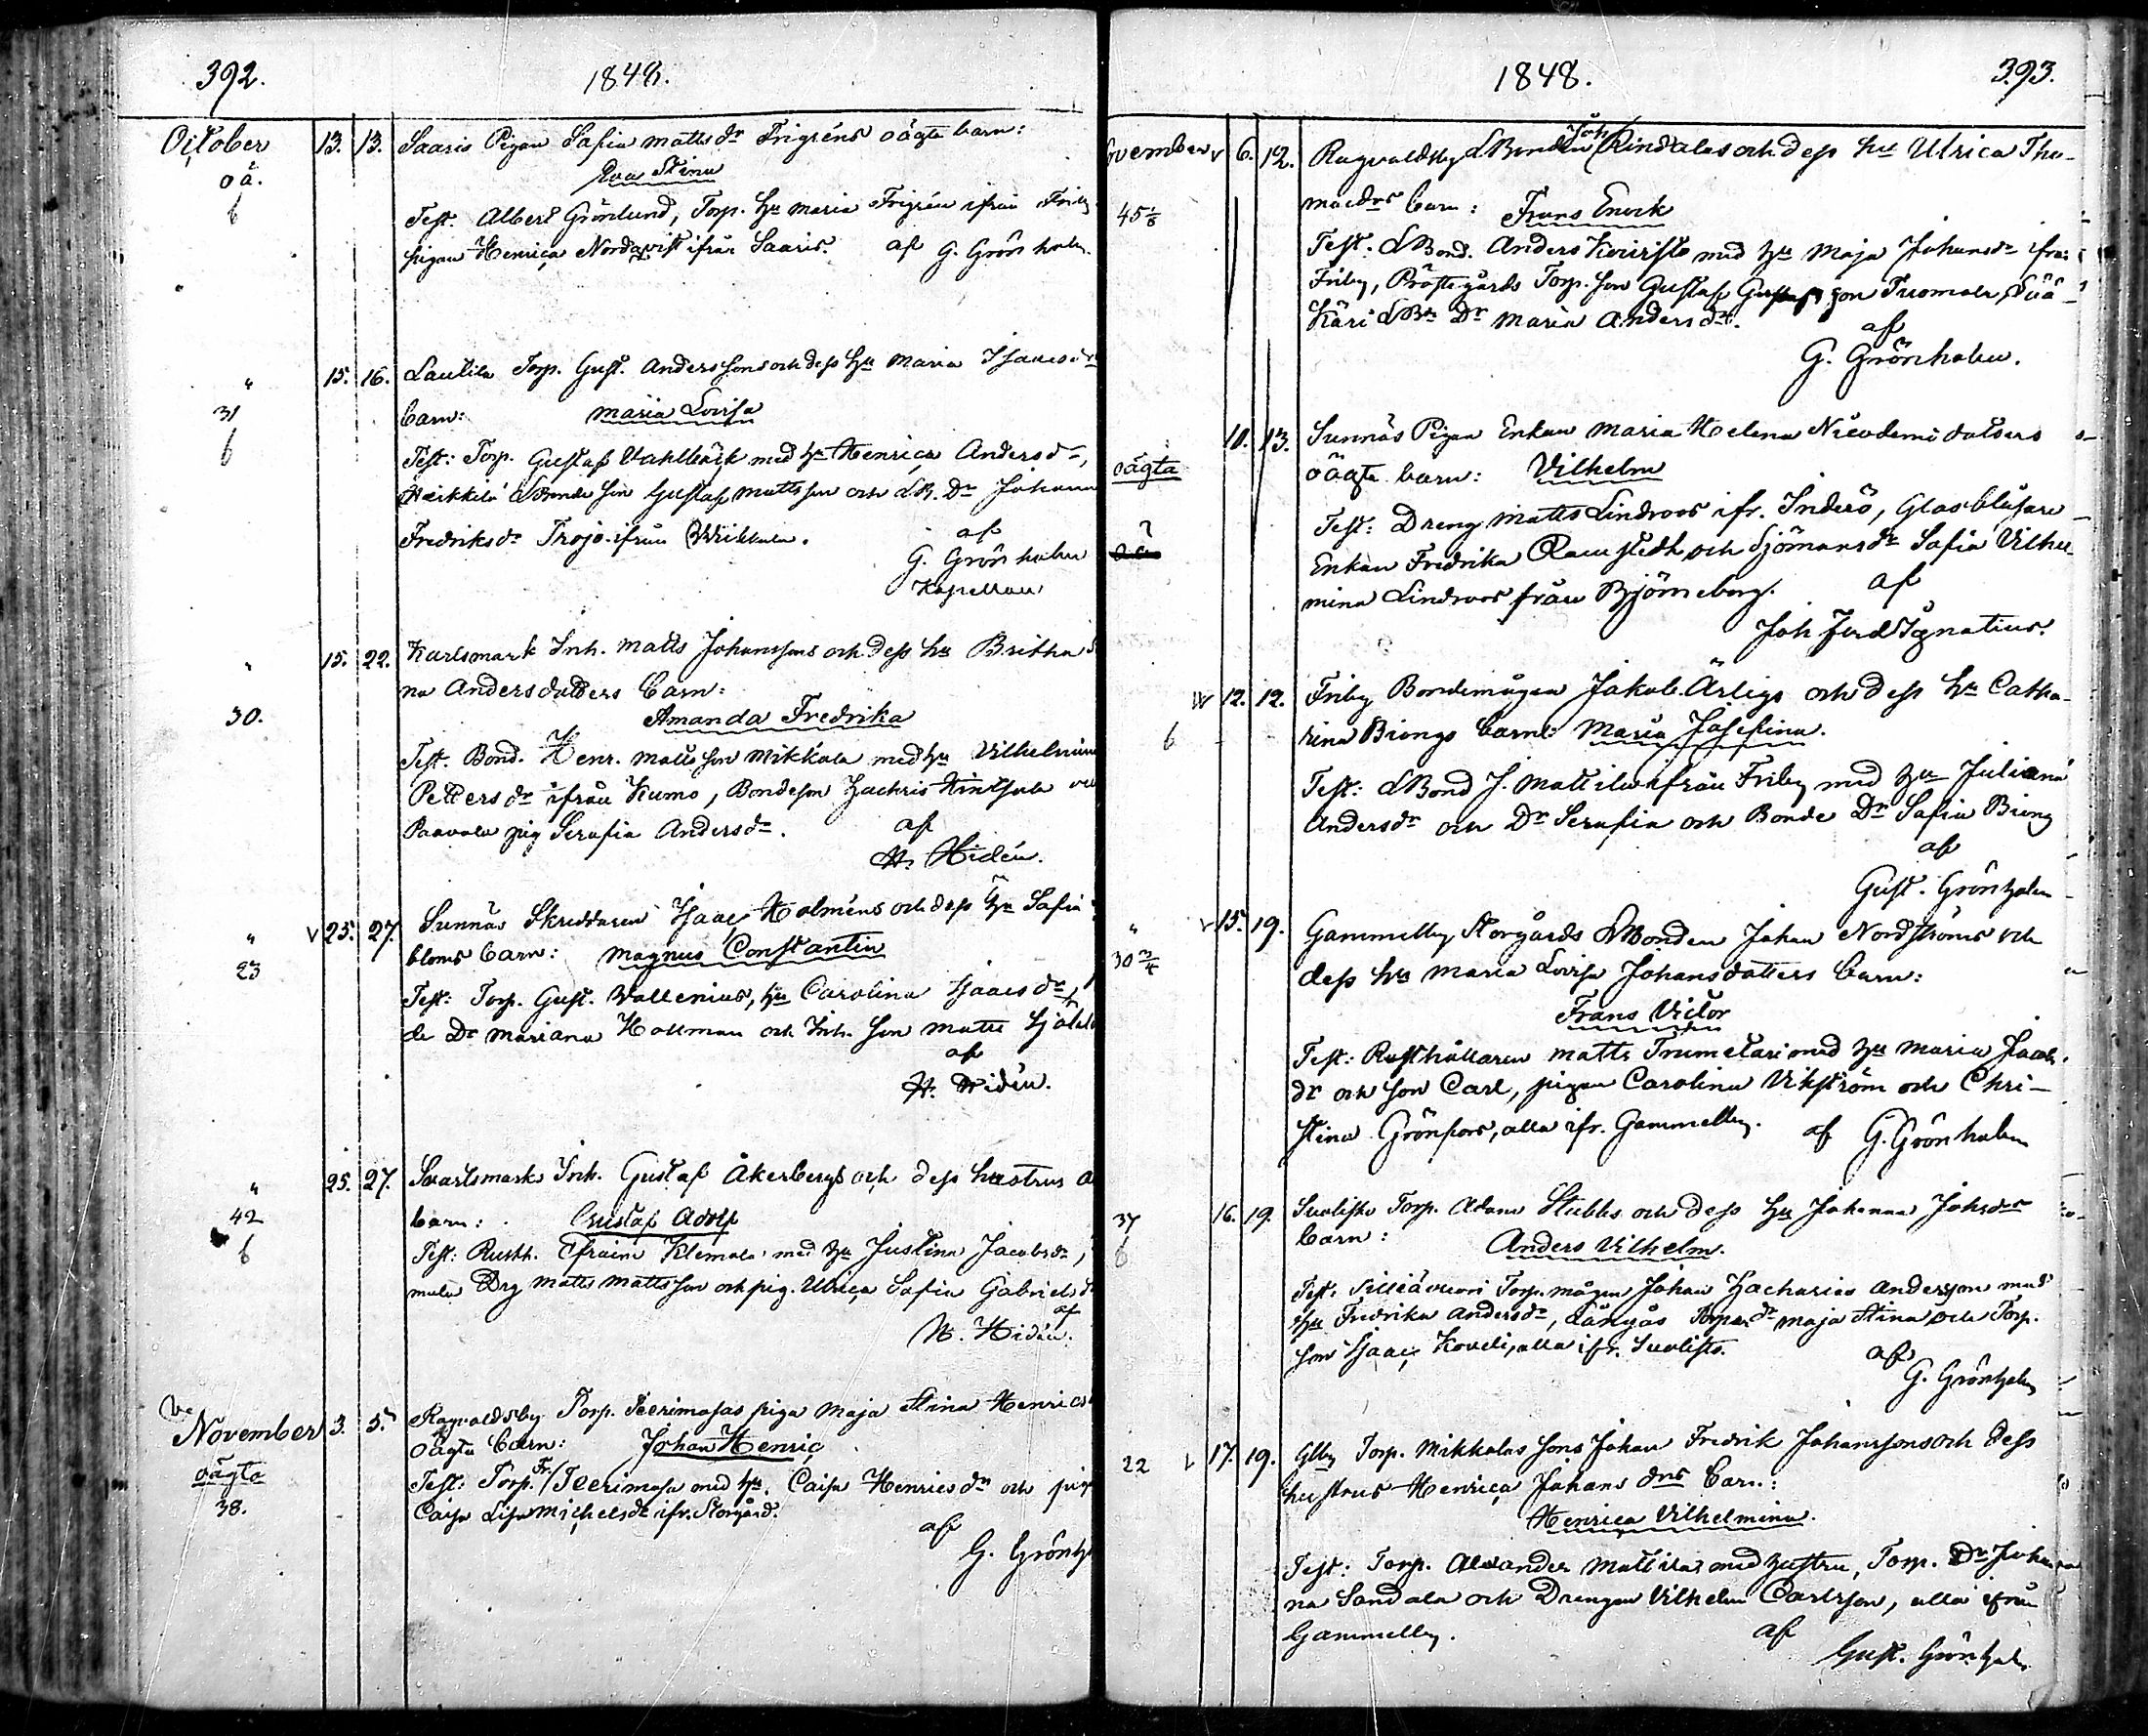 392.
1848.
October 13. 13. Saaris Pigan Safia Mattsdr Frigréns oägta barn:
oä. Eva Stina
6 Test. Albert Grönlund, Torp. hu Maria Frigrén ifrån Friby
pigan Henrica Nordqvist ifrån Saaris. af G. Grönholm.
" 15. 16. Lautila Torp. Gust. Anderssons och dess hu Maria Isaacsdr
31 barn: Maria Lovisa
6 Test: Torp. Gustaf Vahlbäck med hu Henrica Andersdr,
Heikkilä LBonde son Gustaf Mattsson och LB. Dr Johanna
Fredriksdr Trojo ifrån af
G. Grönholm
Kapellan
" 15. 22. Karlsmark Inh. Matts Johanssons och dess hu Britha
na Andersdotters barn:
30. Amanda Fredrika
Test. Bond. Henr. Mattsson Mikkola med hu Vilhelmina
Pettersdr ifrån Kumo, Bondeson Zachris
Paavola pig Serafia Andersdr. af
H. Hidén.
" v 25. 27. Sunnäs Skreddaren Isaac Holméns och dess hu Safia
23 bloms barn: Magnus Constantin
Test: Torp. Gust. Wallenius, hu Carolina Isaacsdr,
de Dr Mariana Hollman och Inh. son Matts
af
H. Hidén.
" 25. 27. Svartsmarks Inh. Gustaf Åkerbergs och dess hustrus
42 barn: Gustaf Adolf
6 Test: Rusth. Efraim Klemola med hu Justina Jacobsdr,
mula Drg Matts Mattsson och pig. Ulrica Safia Gabrielsdr
af
H. Hidén.
November 3. 5. Ragvaldsby Torp. Teerimasas piga Maja Stina Henrics
oägta oägta barn: Johan Henric
38. Test: Torp. Fr. Teerimasa med hu. Caisa Henricsdr och pig
Caisa Lisa Michelsdr ifr. Storgård.
af
G. Grönh
1848.
393.
ovember v 6. 12. Ragvaldsby LBonden Joh Rindalas och dess hu Ulrica Tho-
45 1/8 masdrs barn: Frans Enock
Test: LBond. Anders Koivisto med hu Maja Johansdr ifrån
Friby, Prästegårds Torp. son Gustaf Gustafsson Tuomola,
Käri LBs Dr Maria Andersdr.
af
G. Grönholm.
10. 13. Sunnäs Pigan Enkan Maria Helena Nicodemi dotters
oägta oägta barn: Vilhelm
Test: Dreng Matts Lindroos ifr. Inderö, Glasblåsare
Enkan Fredrika Ramstedt och Sjömansdr Safia Vilhel-
mina Lindroos från Björneborg. af
Joh Ferd Ignatius.
12. 12. Friby Bondemågen Jakob Ärligs och dess hu Catha-
6 rina Biongs barn: Maria Josefina.
Test: LBond J. Mattila ifrån Friby med hu Juliana
Andersdr och Dr Serafia och Bonde Dr Safia Biong
af
Gust. Grönholm
" v 15. 19. Gammelby Storgårds LBonden Johan Nordströms och
30 3/4 dess hu Maria Lovisa Johansdotters barn:
Frans Victor
Test: Rusthållaren Matts Trumetari med hu Maria Jacobs
dr och son Carl, pigan Carolina Vikström och Chri-
stina Grönfors, alla ifr. Gammelby. af G. Grönholm
37 16. 19. Suolisto Torp. Adam Stubbs och dess hu Johanna Johsdrs
6 barn: Anders Vilhelm.
Test: Torp. mågen Johan Zacharias Andersson med
hu Fredrika Andersdr, Långås Torpardr Maja Stina och Torp.
son Isaac Koveli, alla ifr. Suolisto. af
G. Grönholm
22 v 17. 19. Glby Torp. Mikkolas sons Johan Fredrik Johanssons och dess
hustrus Henrica Johans drs barn:
Henrica Vilhelmina.
Test: Torp. Alexander Mattilas med hustru, Torp. Dr Johan
na Sandala och Drengen Vilhelm Carlsson, alla ifrån
Gammelby. af
Gust. Grönholm